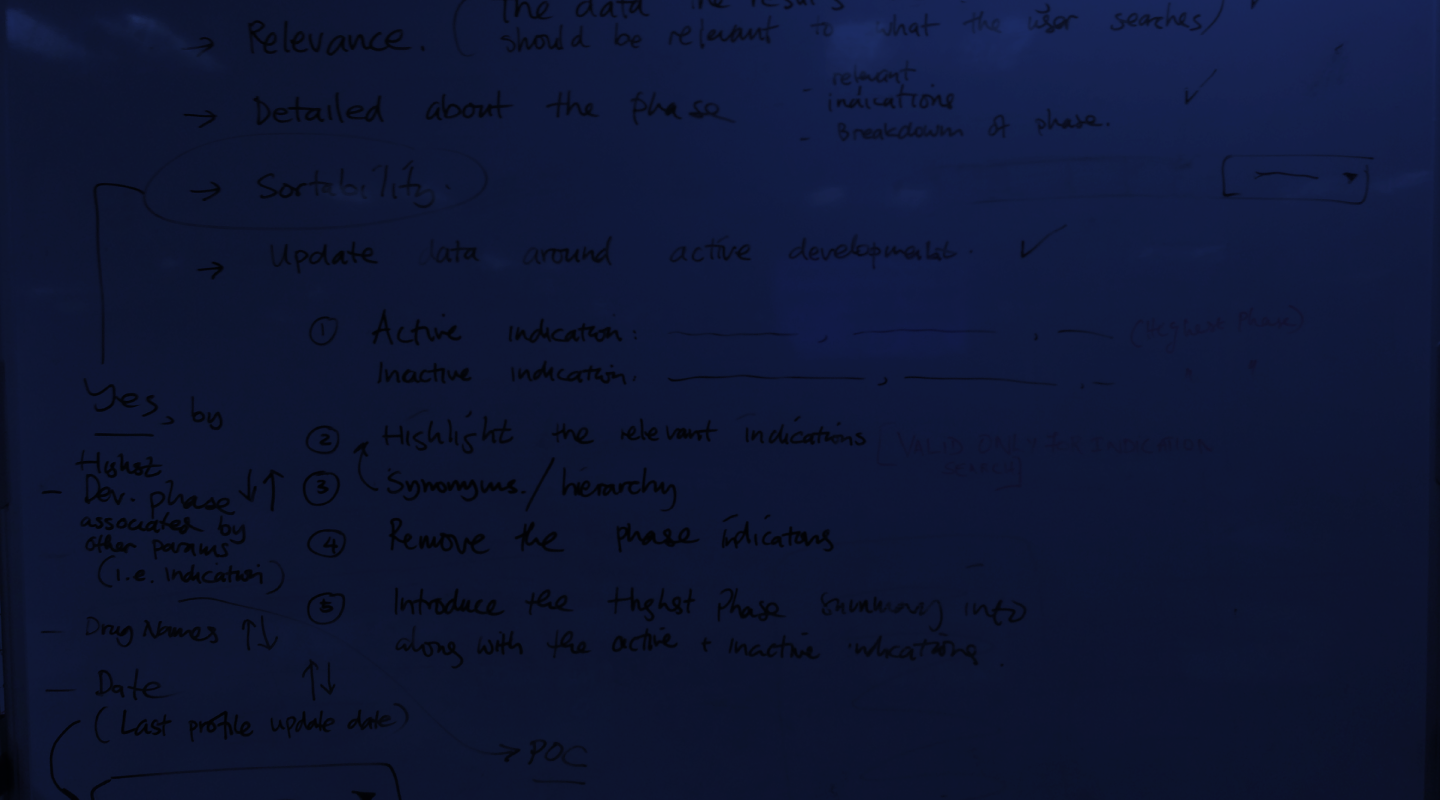 The data the results
→ Relevance. (should be relevant to what the user searches) ✓
→ Detailed about the phase
- relevant indications ✓
- Breakdown of phase.
→ Sortability.
→ Update data around active ✓
① Active indication: (Highest Phase)
Inactive indication.
② Highlight the relevant indications
[VALID ONLY FOR INDICATION
SEARCH]
③ Synonyms. / hierarchy
④ Remove the phase indicators
⑤ Introduce the Highest Phase summary into
along with the active + inactive indications.
Yes, by
Highest
- Dev. phase ↓↑
associated by
other params
(i.e. indication)
- Drug Names ↑↓
- Date ↑↓
(Last profile update date)
→ POC